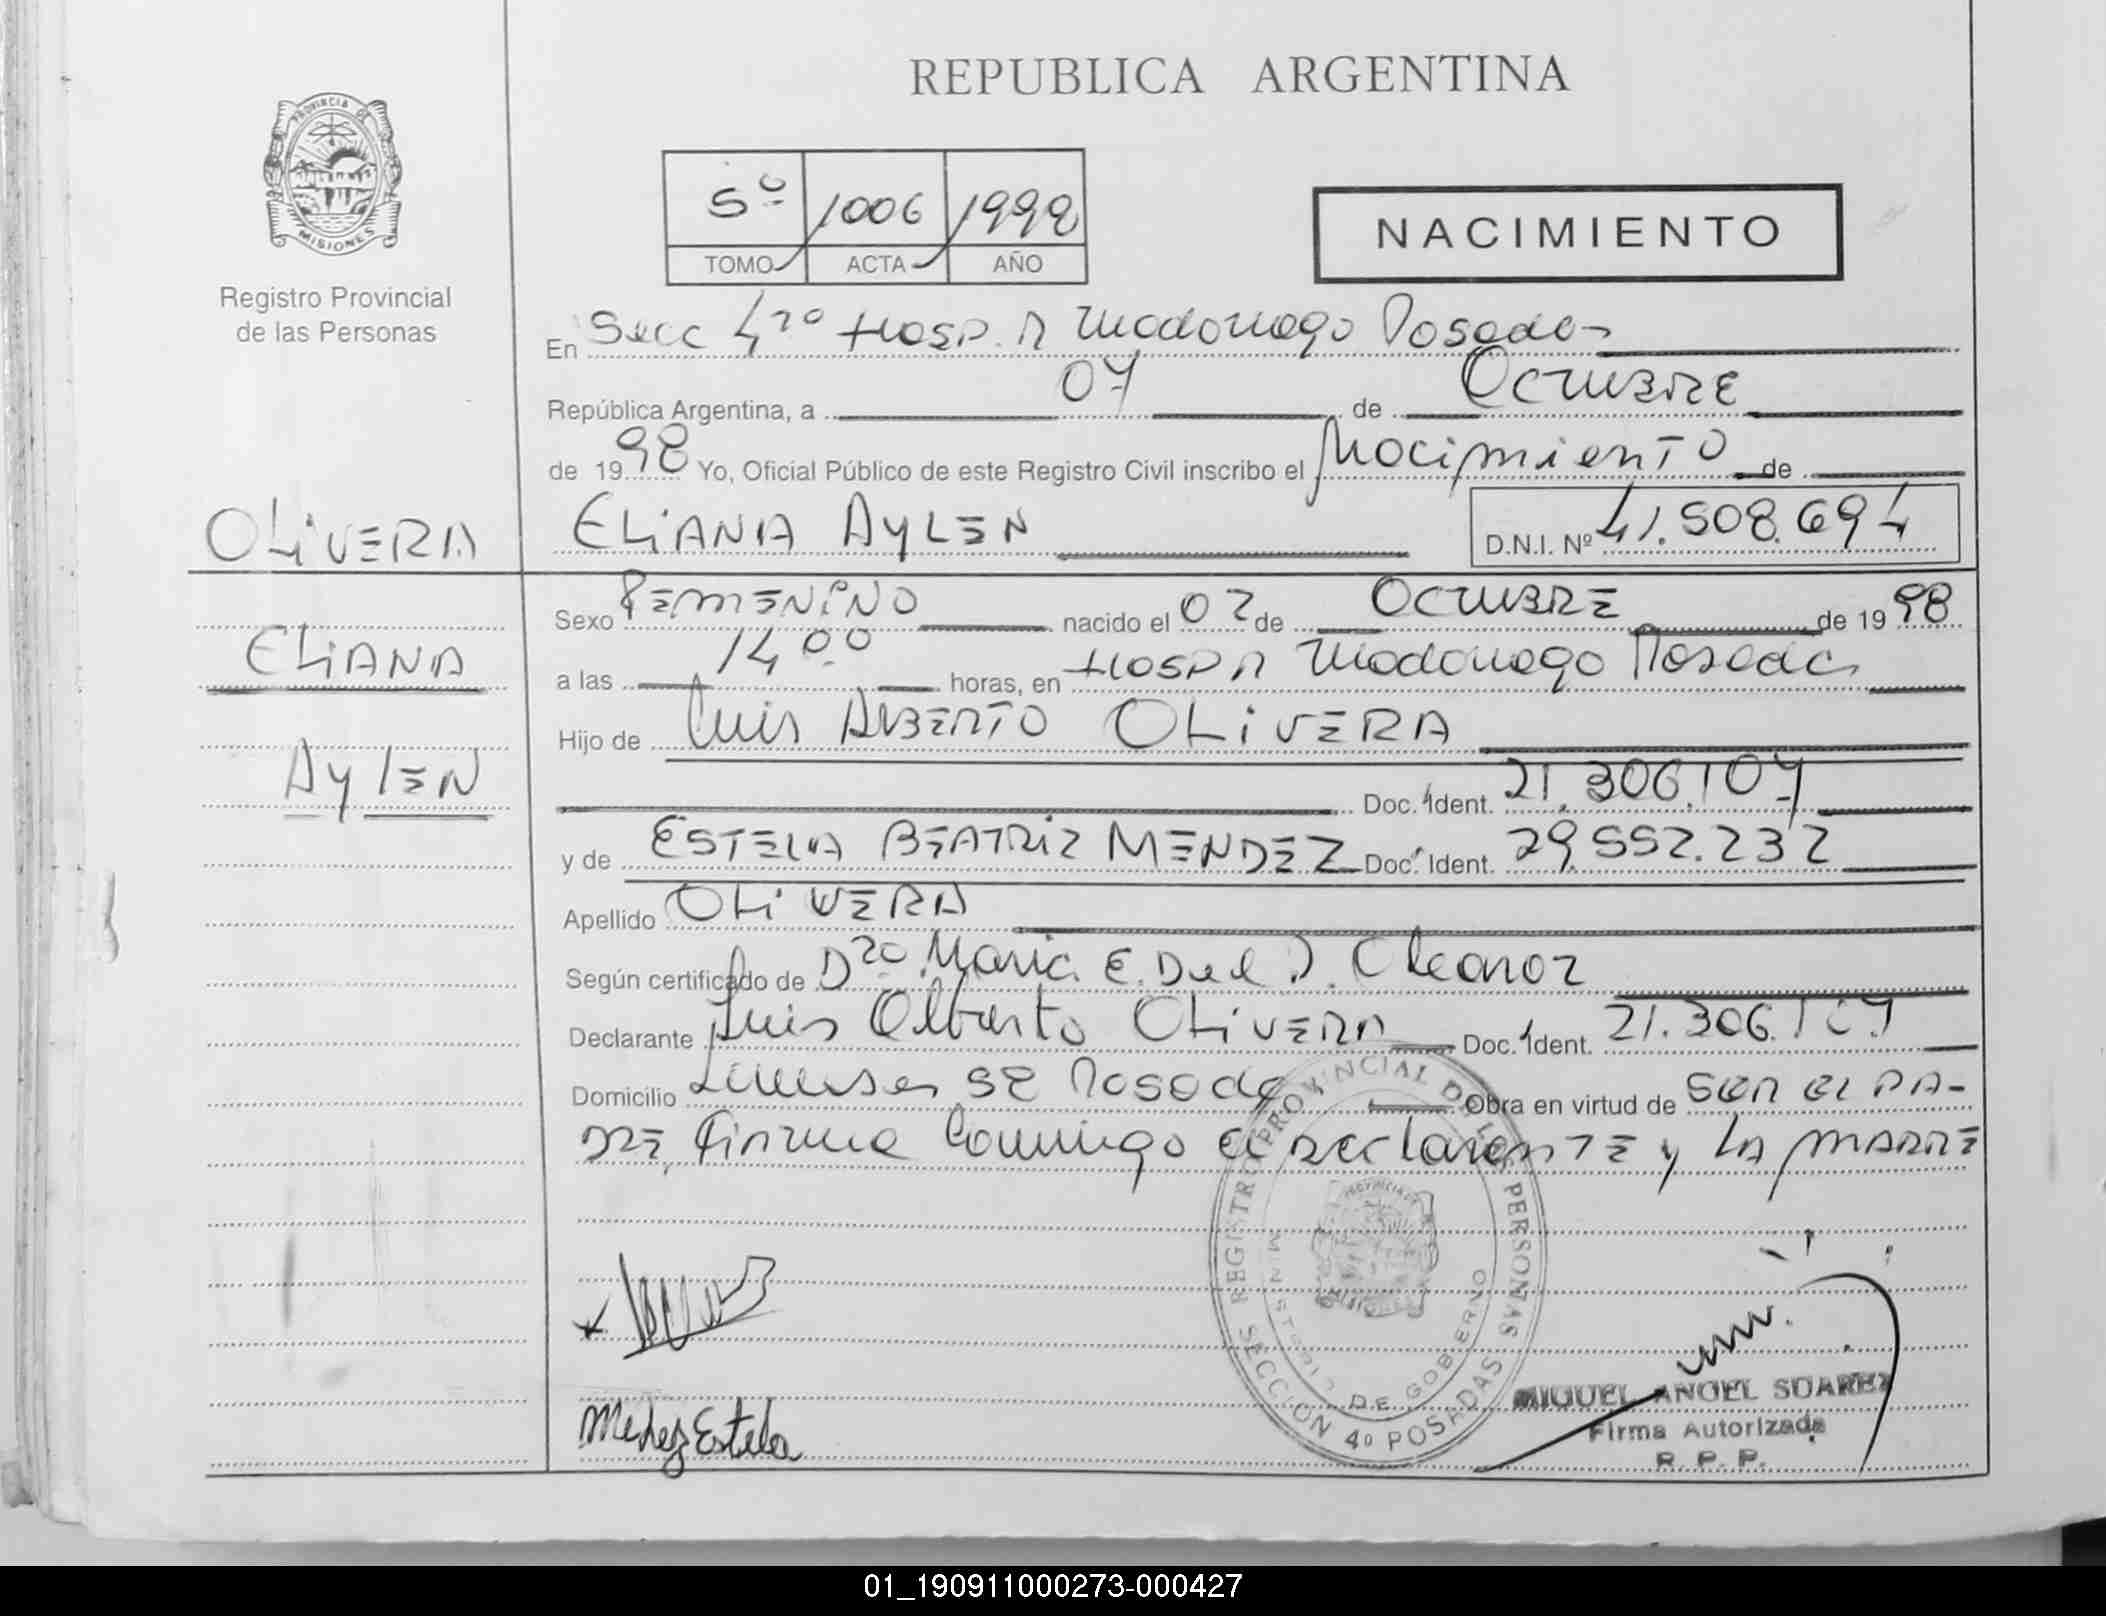 REPUBLICA ARGENTINA
PROVINCIA DE
MISIONES
Registro Provincial
de las Personas
5º 1006 1998
TOMO ACTA AÑO
NACIMIENTO
En Secc 4ta Hosp. R Madariaga Posadas
República Argentina, a 07 de OCTUBRE
de 1998 Yo, Oficial Público de este Registro Civil inscribo el Nacimiento de
OLIVERA ELIANA AYLEN D.N.I. Nº 41.508.694
Sexo FEMENINO nacido el 02 de OCTUBRE de 1998
ELIANA
a las 14,00 horas, en HOSP R Madariaga Posadas
Hijo de Luis ALBERTO OLIVERA
AYlEN
Doc. Ident. 21.306.107
y de ESTELA BEATRIZ MENDEZ Doc. Ident. 29.552.232
Apellido OLIVERA
Según certificado de Dra. Maria E. Del Eleanor
Declarante Luis Alberto OLIVERA Doc. Ident. 21.306.107
Domicilio 52 Posadas Obra en virtud de SER EL PA-
DRE, Firma Conmigo el DEClaranTE y LA MADRE
REGISTRO PROVINCIAL DE LAS PERSONAS
MINISTERIO DE GOBIERNO
SECCION 4º POSADAS
MIGUEL ANGEL SUAREZ
Firma Autorizada
R. P. P.
Mendez Estela
01_190911000273-000427